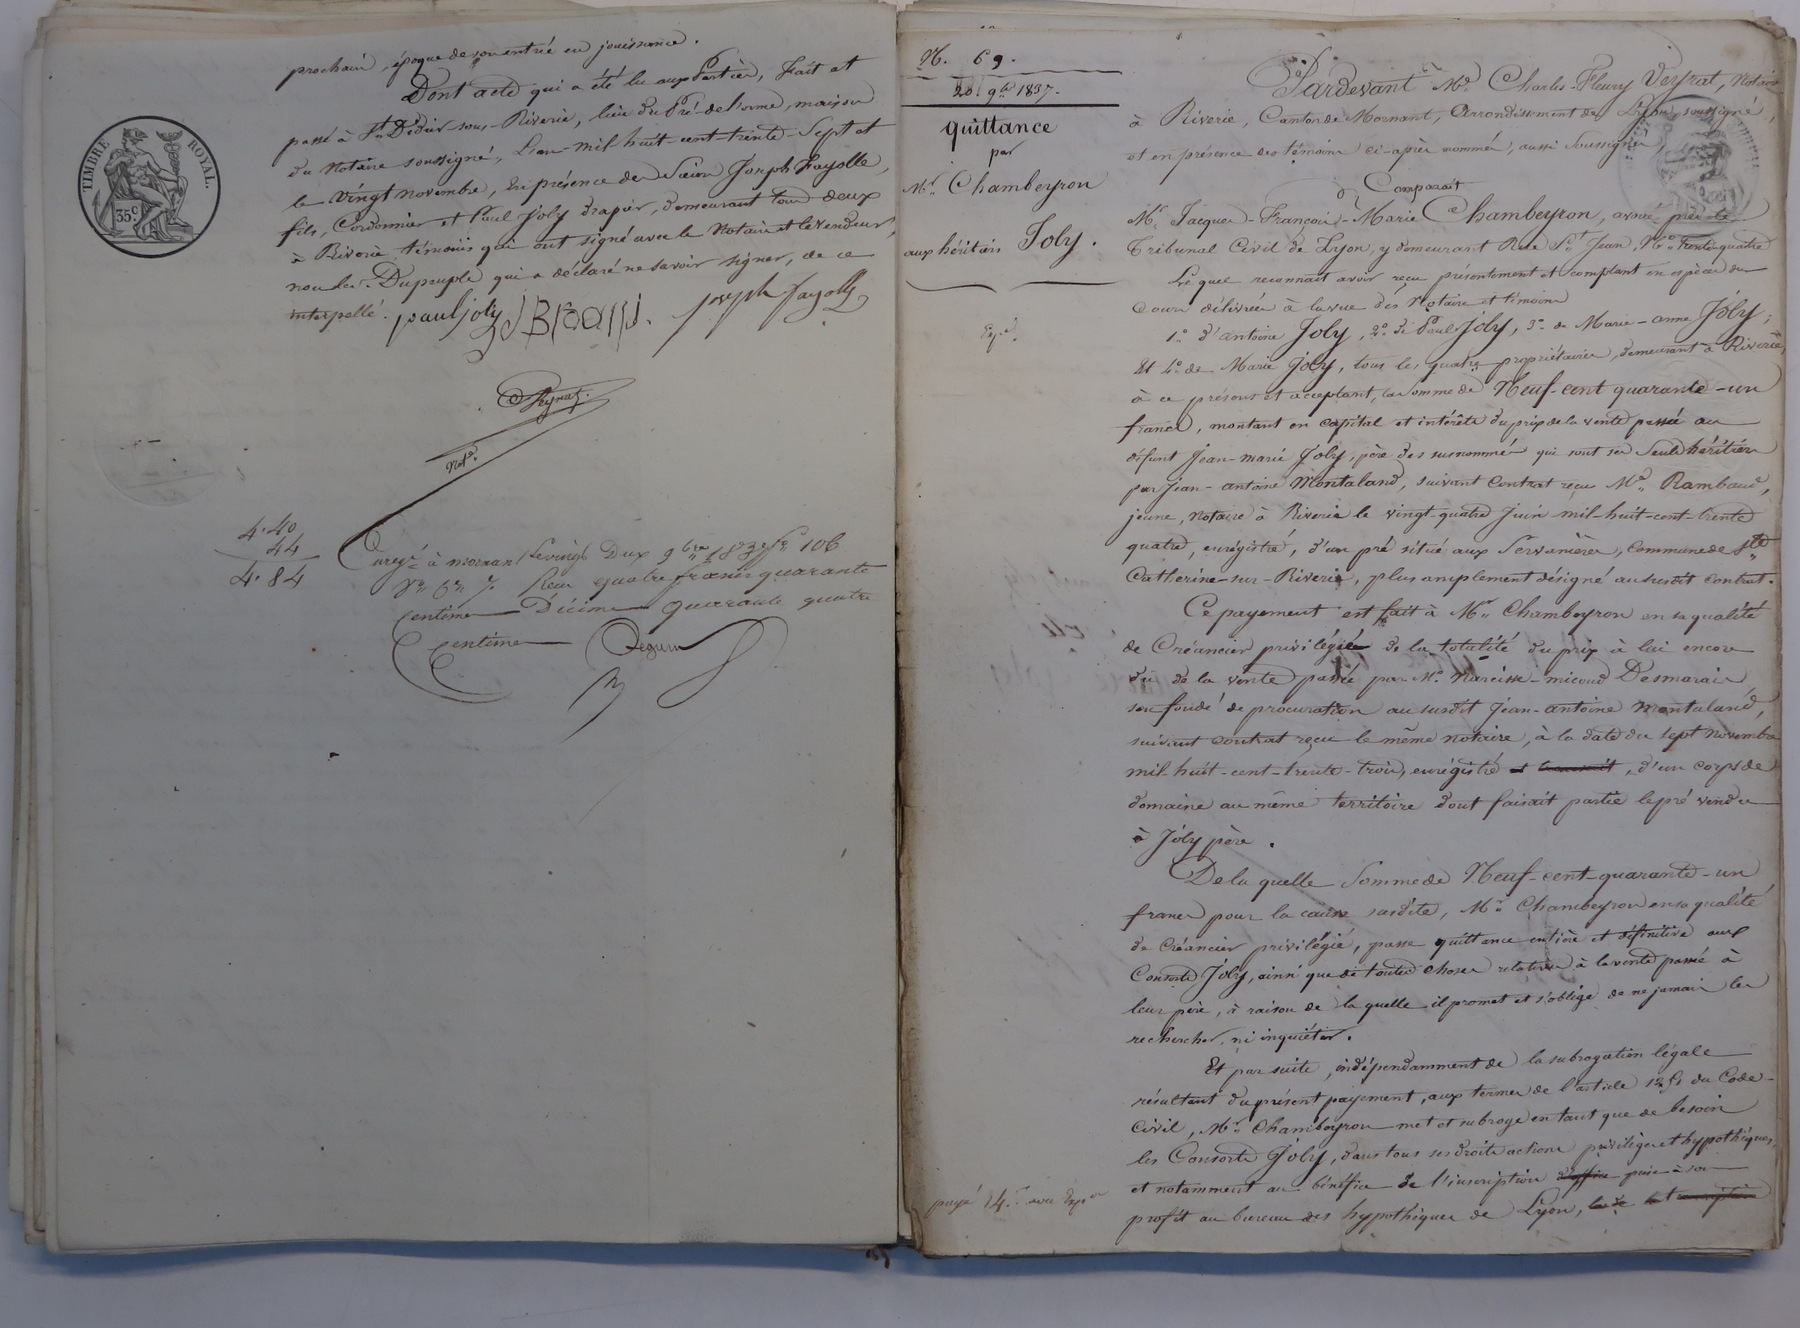 prochain, époque de son entrée en jouissance.
Dont acte qui a été lu aux Parties, Fait et
passé à St. Didier-sous-Riverie, lieu du Pré-de-l'orme, maison
du Notaire soussigné, L'an-mil huit-cent-trente-Sept et
le Vingt novembre, En présence de Sieur Joseph Fayolle,
fils, Cordonnier et Paul Joly drapier, demeurant tous deux
à Riverie, témoins qui ont signé avec le Notaire et le vendeur,
non les Dupeuple qui a déclaré ne savoir signer, de ce
interpellé.
paul joly
joseph fayolle
Not.e
TIMBRE ROYAL.
35c
4.40
44
4.84
Enreg.é à mornant le vingt Deux 9bre 1837 fo 106
Vo Reçu quatre francs quarante
centimes Décime quarante quatre
centimes
N. 69.
20. 9bre 1837.
quittance
par
Mr. Chambeyron
aux héritiers Joly.
Exp.é
Pardevant Me. Charles-Fleury Veyrat, Notaire
à Riverie, Canton de Mornant, Arrondissement de Lyon, soussigné,
et en présence des témoins ci-après nommés, aussi Soussignés,
Comparait
Mr. Jacques-François-Marie Chambeyron, avoué près le
Tribunal Civil de Lyon, y demeurant Rue St. Jean, No. Trente-quatre
Lequel reconnait avoir reçu présentement et comptant en espèces du
Cours délivrées à la vue des Notaire et témoins
1o. d'antoine Joly, 2o. de Paul Joly, 3o. de Marie-anne Joly;
Et 4o. de Marie Joly, tous les quatre propriétaires, demeurant à Riverie,
à ce présens et acceptant, la Somme de Neuf-cent quarante-un
francs, montant en capital et intérêts du prix de la vente passée au
défunt Jean-marie Joly, père des susnommés qui sont ses Seuls héritiers
par Jean-antoine Montaland, suivant Contrat reçu Me. Rambaud,
jeune, Notaire à Riverie le vingt-quatre Juin mil-huit-cent-trente
quatre, enrégistré, d'un pré situé aux Servanières, Commune de Ste.
Catherine-sur-Riverie, plus amplement désigné au susdit contrat.
Ce payement est fait à Mr. Chambeyron en sa qualité
de Créancier privilégié de la totalité du prix à lui encore
dû de la vente passée par Mr. Narcisse-micoud Desmarais
son fondé de procuration au susdit Jean-antoine Montaland,
suivant contrat reçu le même notaire, à la date du sept Novembre
mil-huit-cent-trente-trois, enrégistré et transcrit, d'un corps de
domaine au même territoire dont faisait partie le pré vendu
à Joly père.
De la quelle Somme de Neuf-cent-quarante-un
francs pour la cause susdite, Mr. Chambeyron en sa qualité
de Créancier privilégié, passe quittance entière et définitive aux
Consorts Joly, ainsi que de toutes choses relatives à la vente passée à
leur père, à raison de la quelle il promet et s'oblige de ne jamais les
rechercher, ni inquiéter.
Et par suite, indépendamment de la subrogation légale
résultant du présent payement, aux termes de l'article 1251 du Code-
Civil, Mr. Chambeyron met et subroge en tant que de besoin
les Consorts Joly, dans tous ses droits actions privilèges et hypothèques,
et notamment au bénéfice de l'inscription d'office prise à son
profit au bureau des hypothèques de Lyon,
payé 14. f avec Exp.on